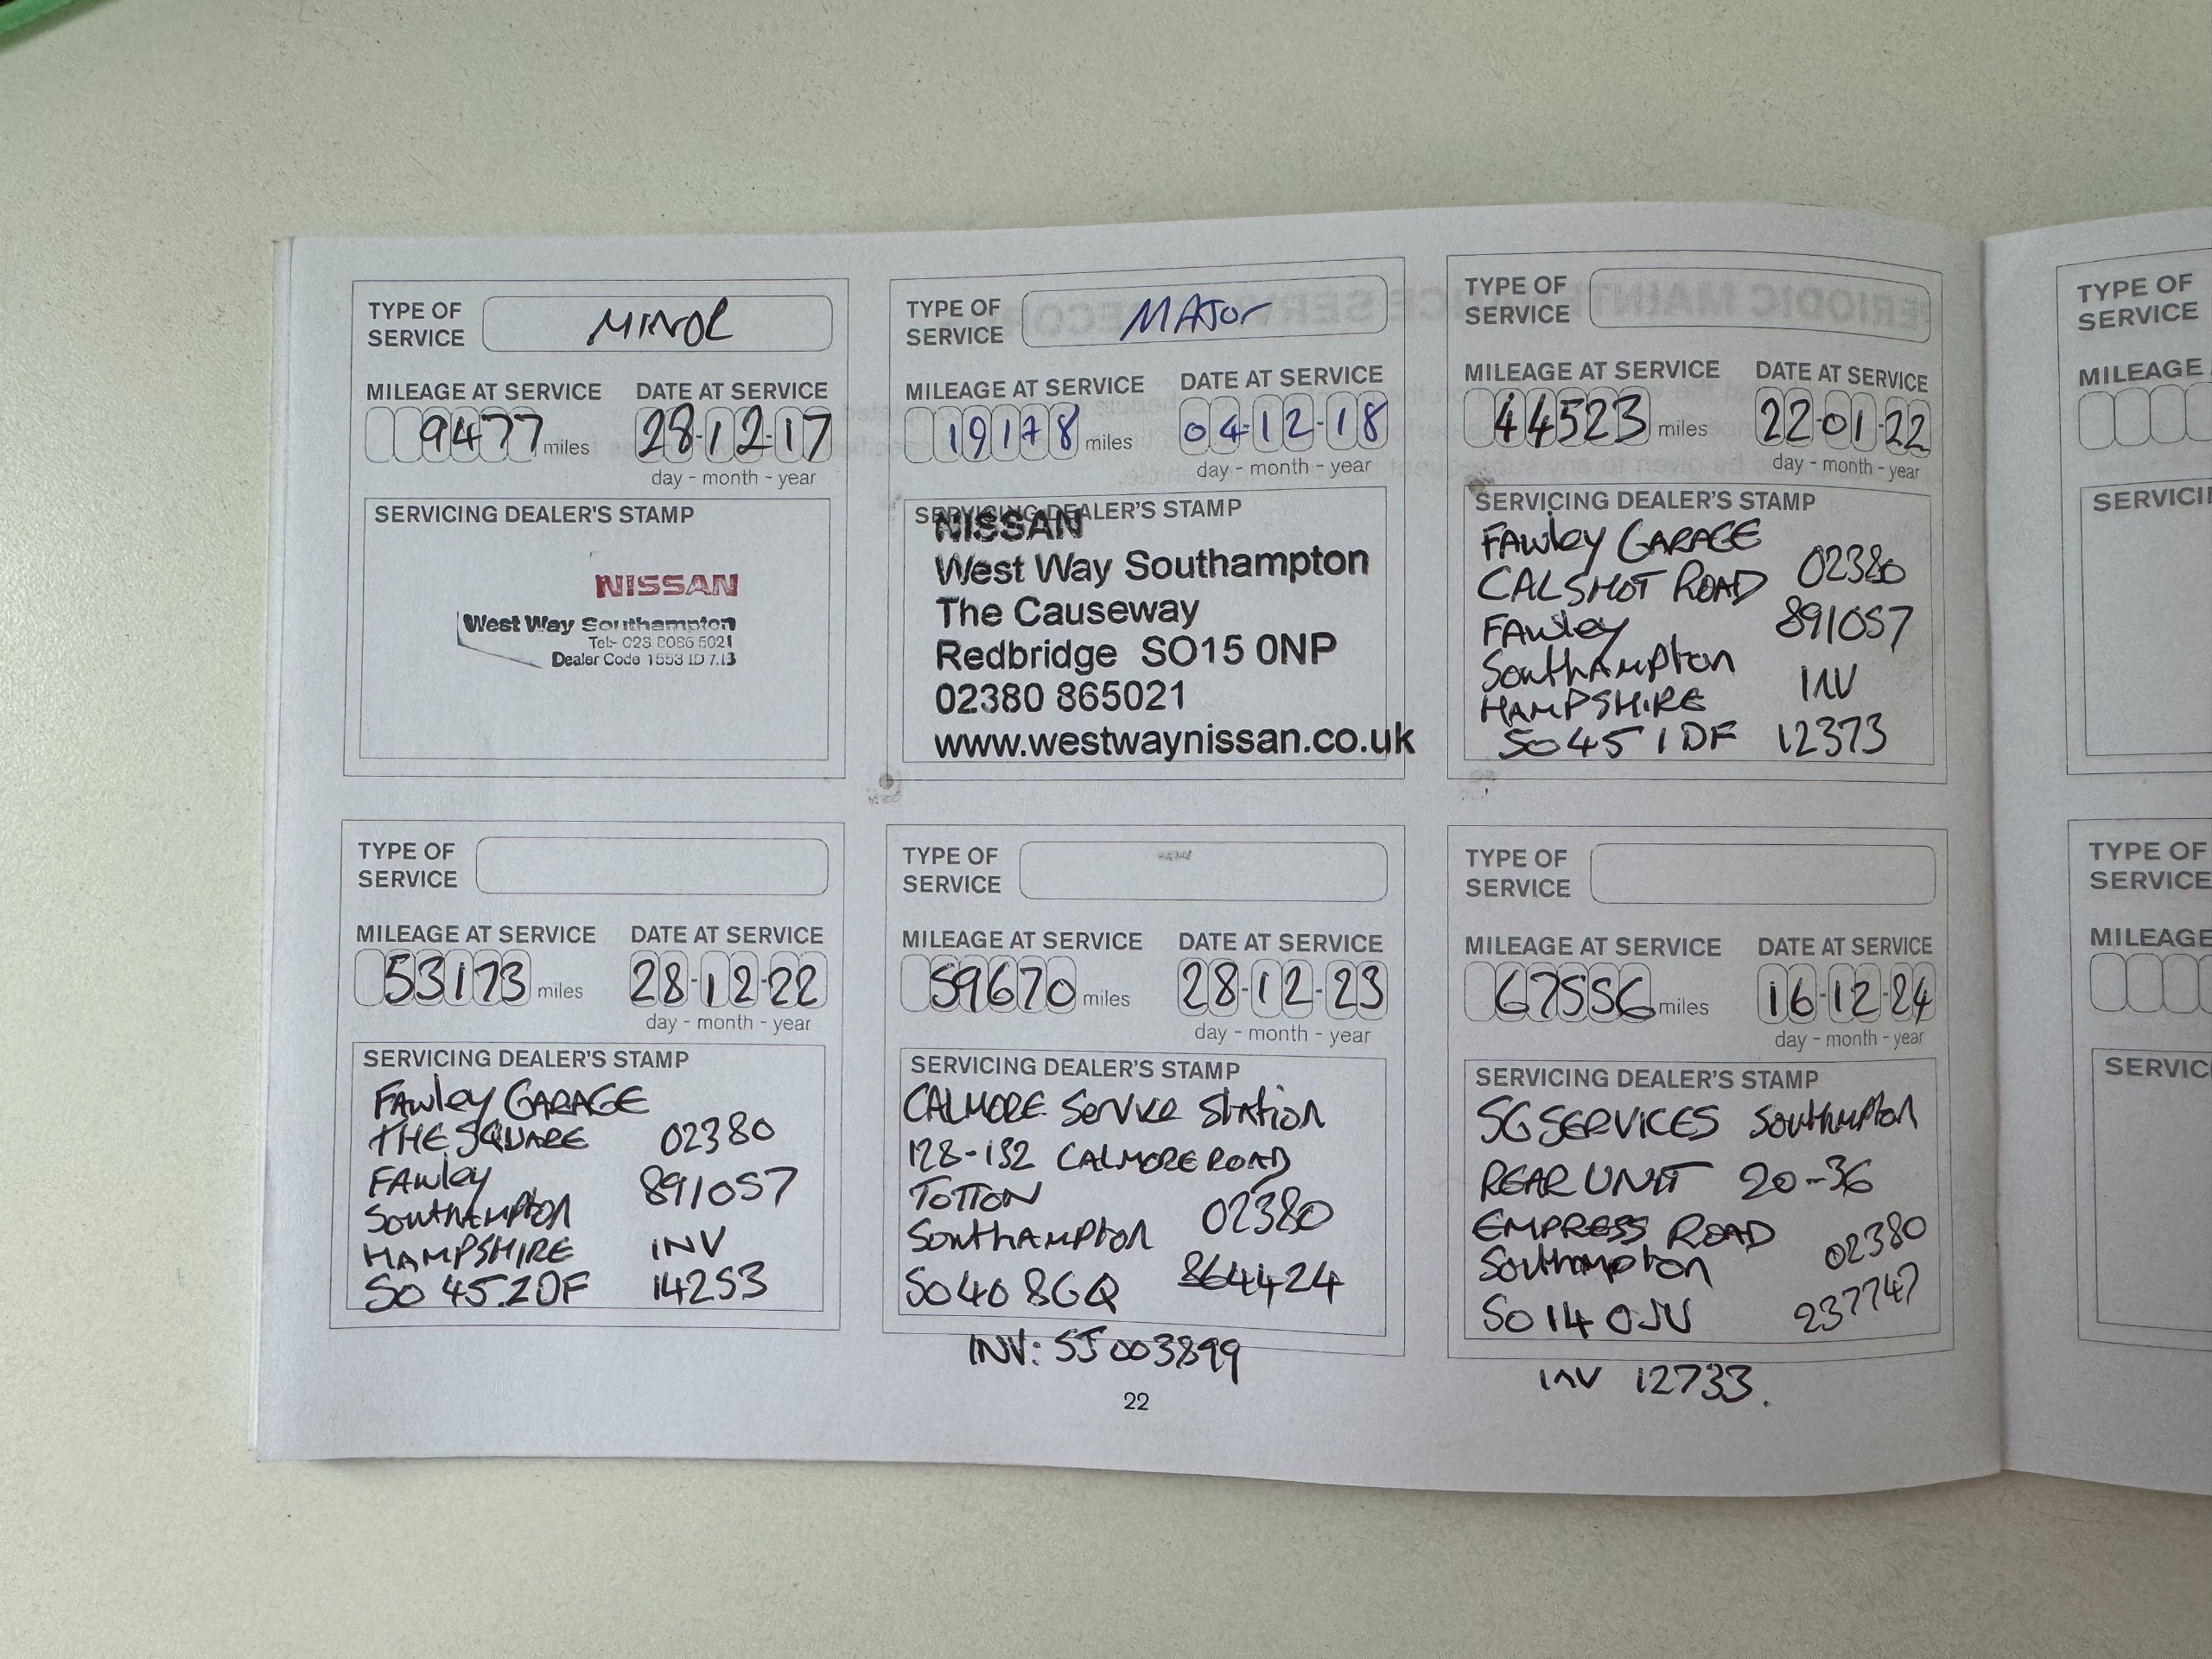 TYPE OF
SERVICE
MINOR
MILEAGE AT SERVICE
DATE AT SERVICE
9477 miles
28-12-17
day - month - year
SERVICING DEALER'S STAMP
NISSAN
West Way Southampton
Tel:- 023 8086 5021
Dealer Code 1553 ID 7.13
TYPE OF
SERVICE
MAJOr
MILEAGE AT SERVICE
DATE AT SERVICE
19178 miles
04-12-18
day - month - year
SERVICING DEALER'S STAMP
NISSAN
West Way Southampton
The Causeway
Redbridge SO15 0NP
02380 865021
www.westwaynissan.co.uk
TYPE OF
SERVICE
MILEAGE AT SERVICE
DATE AT SERVICE
44523 miles
22-01-22
day - month - year
SERVICING DEALER'S STAMP
FAWley GARAGE
CALSHOT ROAD 02380
FAWley 891057
SouthAMPton
HAMPSHIRE INV
SO45 1DF 12373
TYPE OF
SERVICE
MILEAGE AT SERVICE
DATE AT SERVICE
53173 miles
28-12-22
day - month - year
SERVICING DEALER'S STAMP
FAWley GARAGE
THE SQUARE 02380
FAWley 891057
SouthAMPton
HAMPSHIRE INV
SO 45.2DF 14253
TYPE OF
SERVICE
MILEAGE AT SERVICE
DATE AT SERVICE
59670 miles
28-12-23
day - month - year
SERVICING DEALER'S STAMP
CALMORE Service Station
128-132 CALMORE ROAD
TOTTON
SouthAMPton 02380
SO40 8GQ 864424
INV: SJ003899
TYPE OF
SERVICE
MILEAGE AT SERVICE
DATE AT SERVICE
67556 miles
16-12-24
day - month - year
SERVICING DEALER'S STAMP
SG SERVICES Southampton
REAR UNIT 20-36
EMPRESS ROAD
Southampton 02380
SO14 0JU 237747
INV 12733.
22
TYPE OF
SERVICE
MILEAGE
TYPE OF
SERVICE
MILEAGE